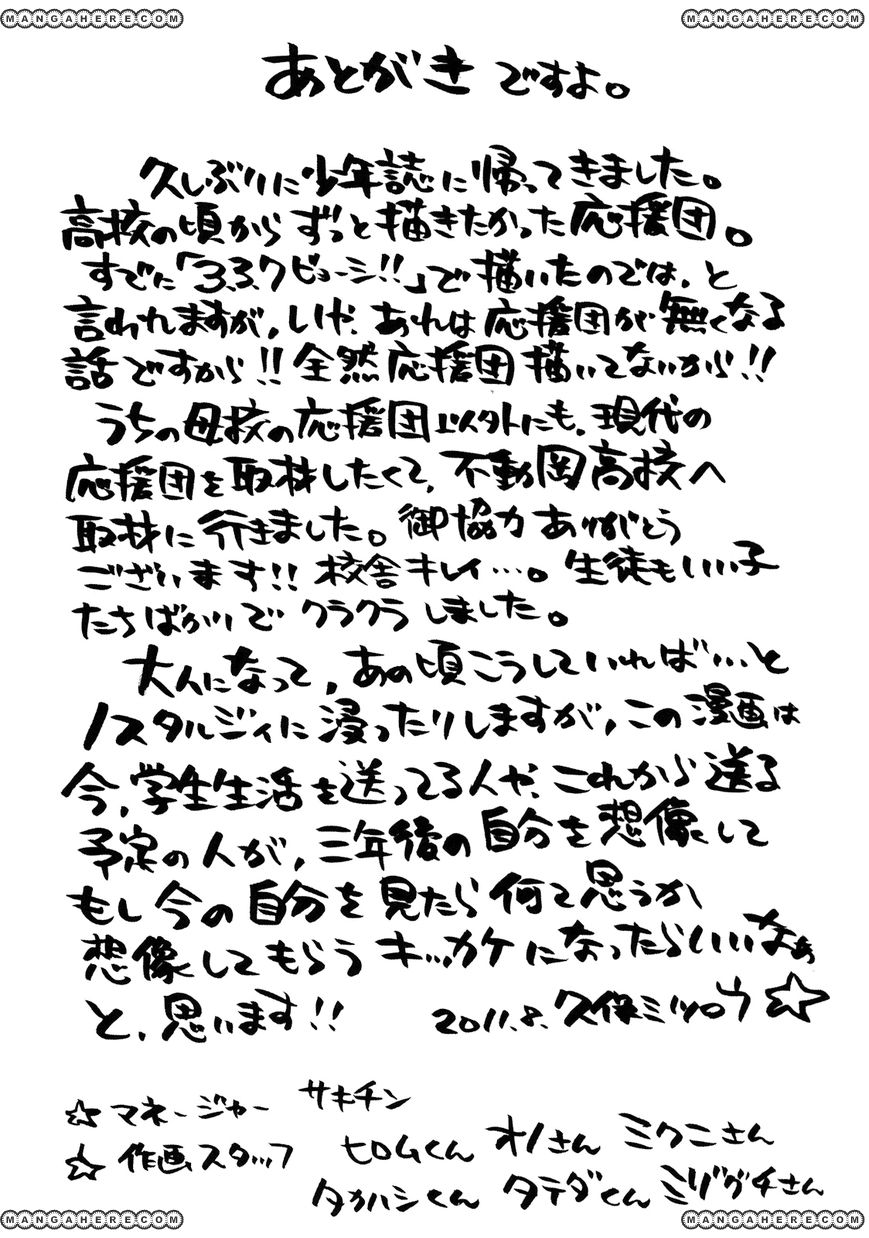 MANGAHERE.COM MANGAHERE.COM
あとがきですよ。
久しぶりに少年誌に帰ってきました。
高校の頃からずっと描きたかった応援団。
すでに「3.3.7ビョーシ!!」で描いたのでは、と
言われますが、いや、あれは応援団が無くなる
話ですから!!全然応援団描いてないから!!
うちの母校の応援団以外にも、現代の
応援団を取材したくて、不動岡高校へ
取材に行きました。御協力ありがとう
ございます!!校舎キレイ…。生徒もいい子
たちばかりでクラクラしました。
大人になって、あの頃こうしていれば…と
ノスタルジィに浸ったりしますが、この漫画は
今、学生生活を送ってる人や、これから送る
予定の人が、三年後の自分を想像して
もし今の自分を見たら何て思うか
想像してもらうキッカケになったらいいなぁ
と、思います!! 2011.8.久保ミツロウ☆
☆マネージャー サキチン
☆作画スタッフ ヒロムくん オノさん ミクニさん
タカハシくん タテダくん ミゾグチさん
MANGAHERE.COM MANGAHERE.COM